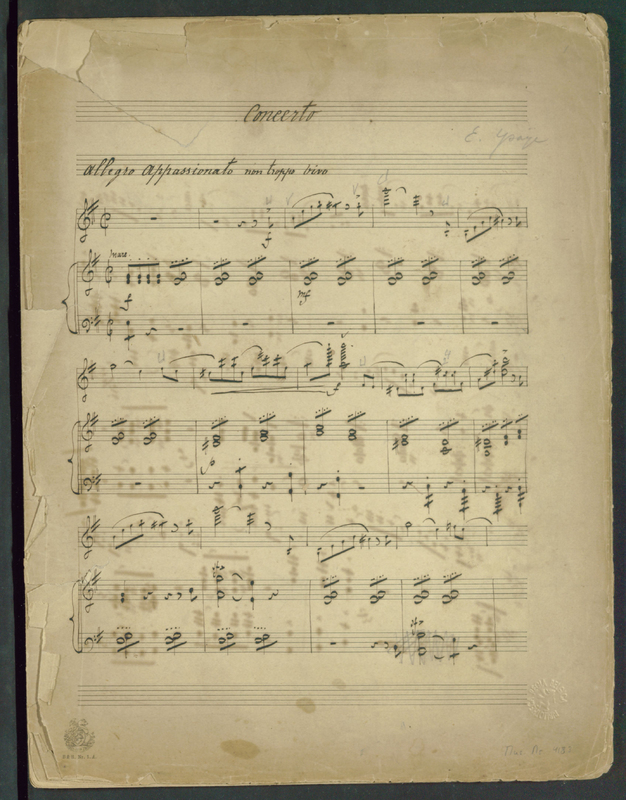 Concerto
E. Ysaÿe
Allegro Appassionato non troppo vivo
mf